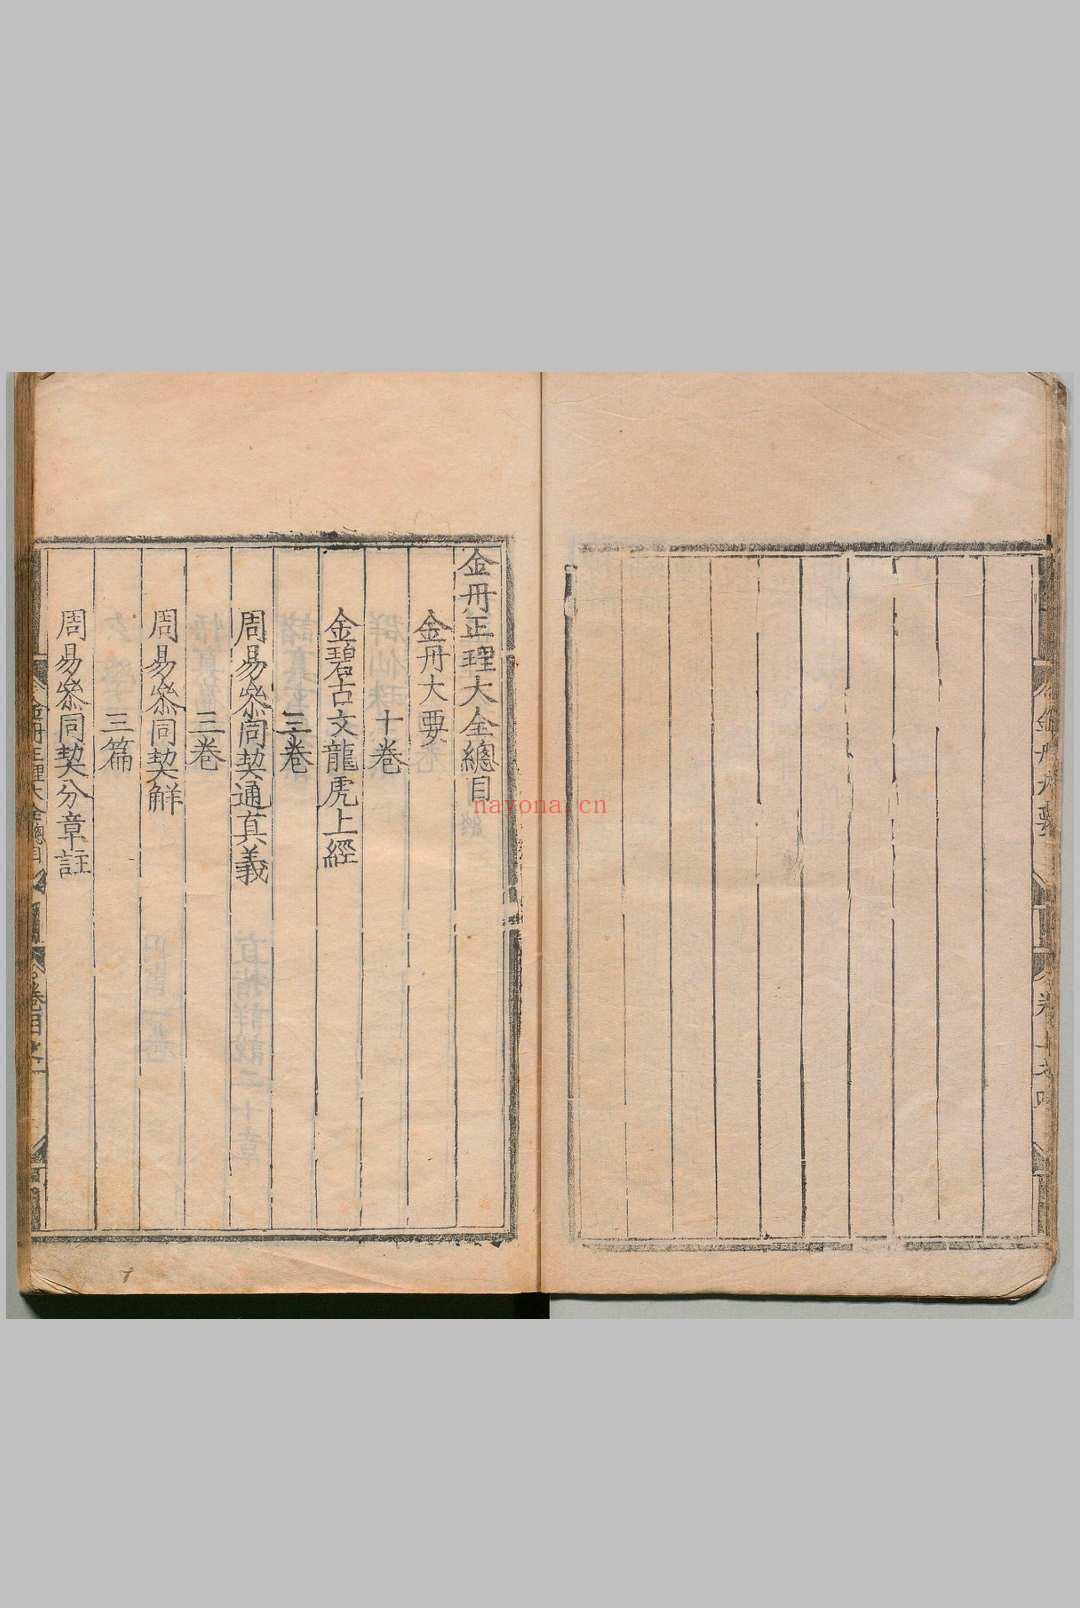 金丹正理大全總目
金丹大要
十卷
金碧古文龍虎上經
三卷
周易叅同契通真義
三卷
周易叅同契解
三篇
周易叅同契分章註
金丹正理大全總目
卷目
金丹大要
卷
nayona.cn